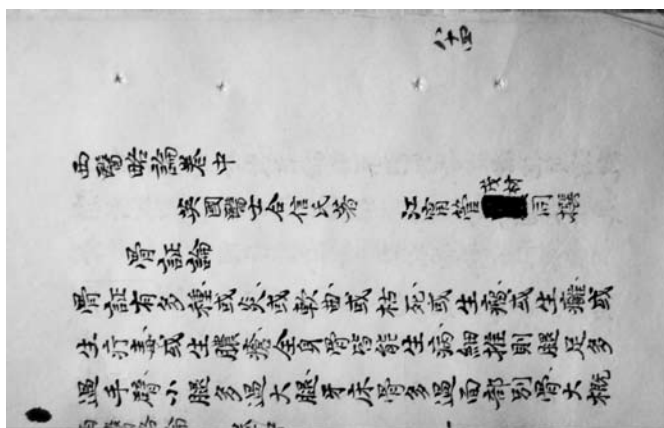 西醫略論卷中
英國醫士合信氏著 江甯管茂材同撰
骨証論
骨証有多種或炎或軟曲或枯死或生瘍或生癰或
生疔毒或生膿瘡全身骨皆能生病細推則腿足多
過手臂小腿多過大腿牙床骨多過面部別骨大概